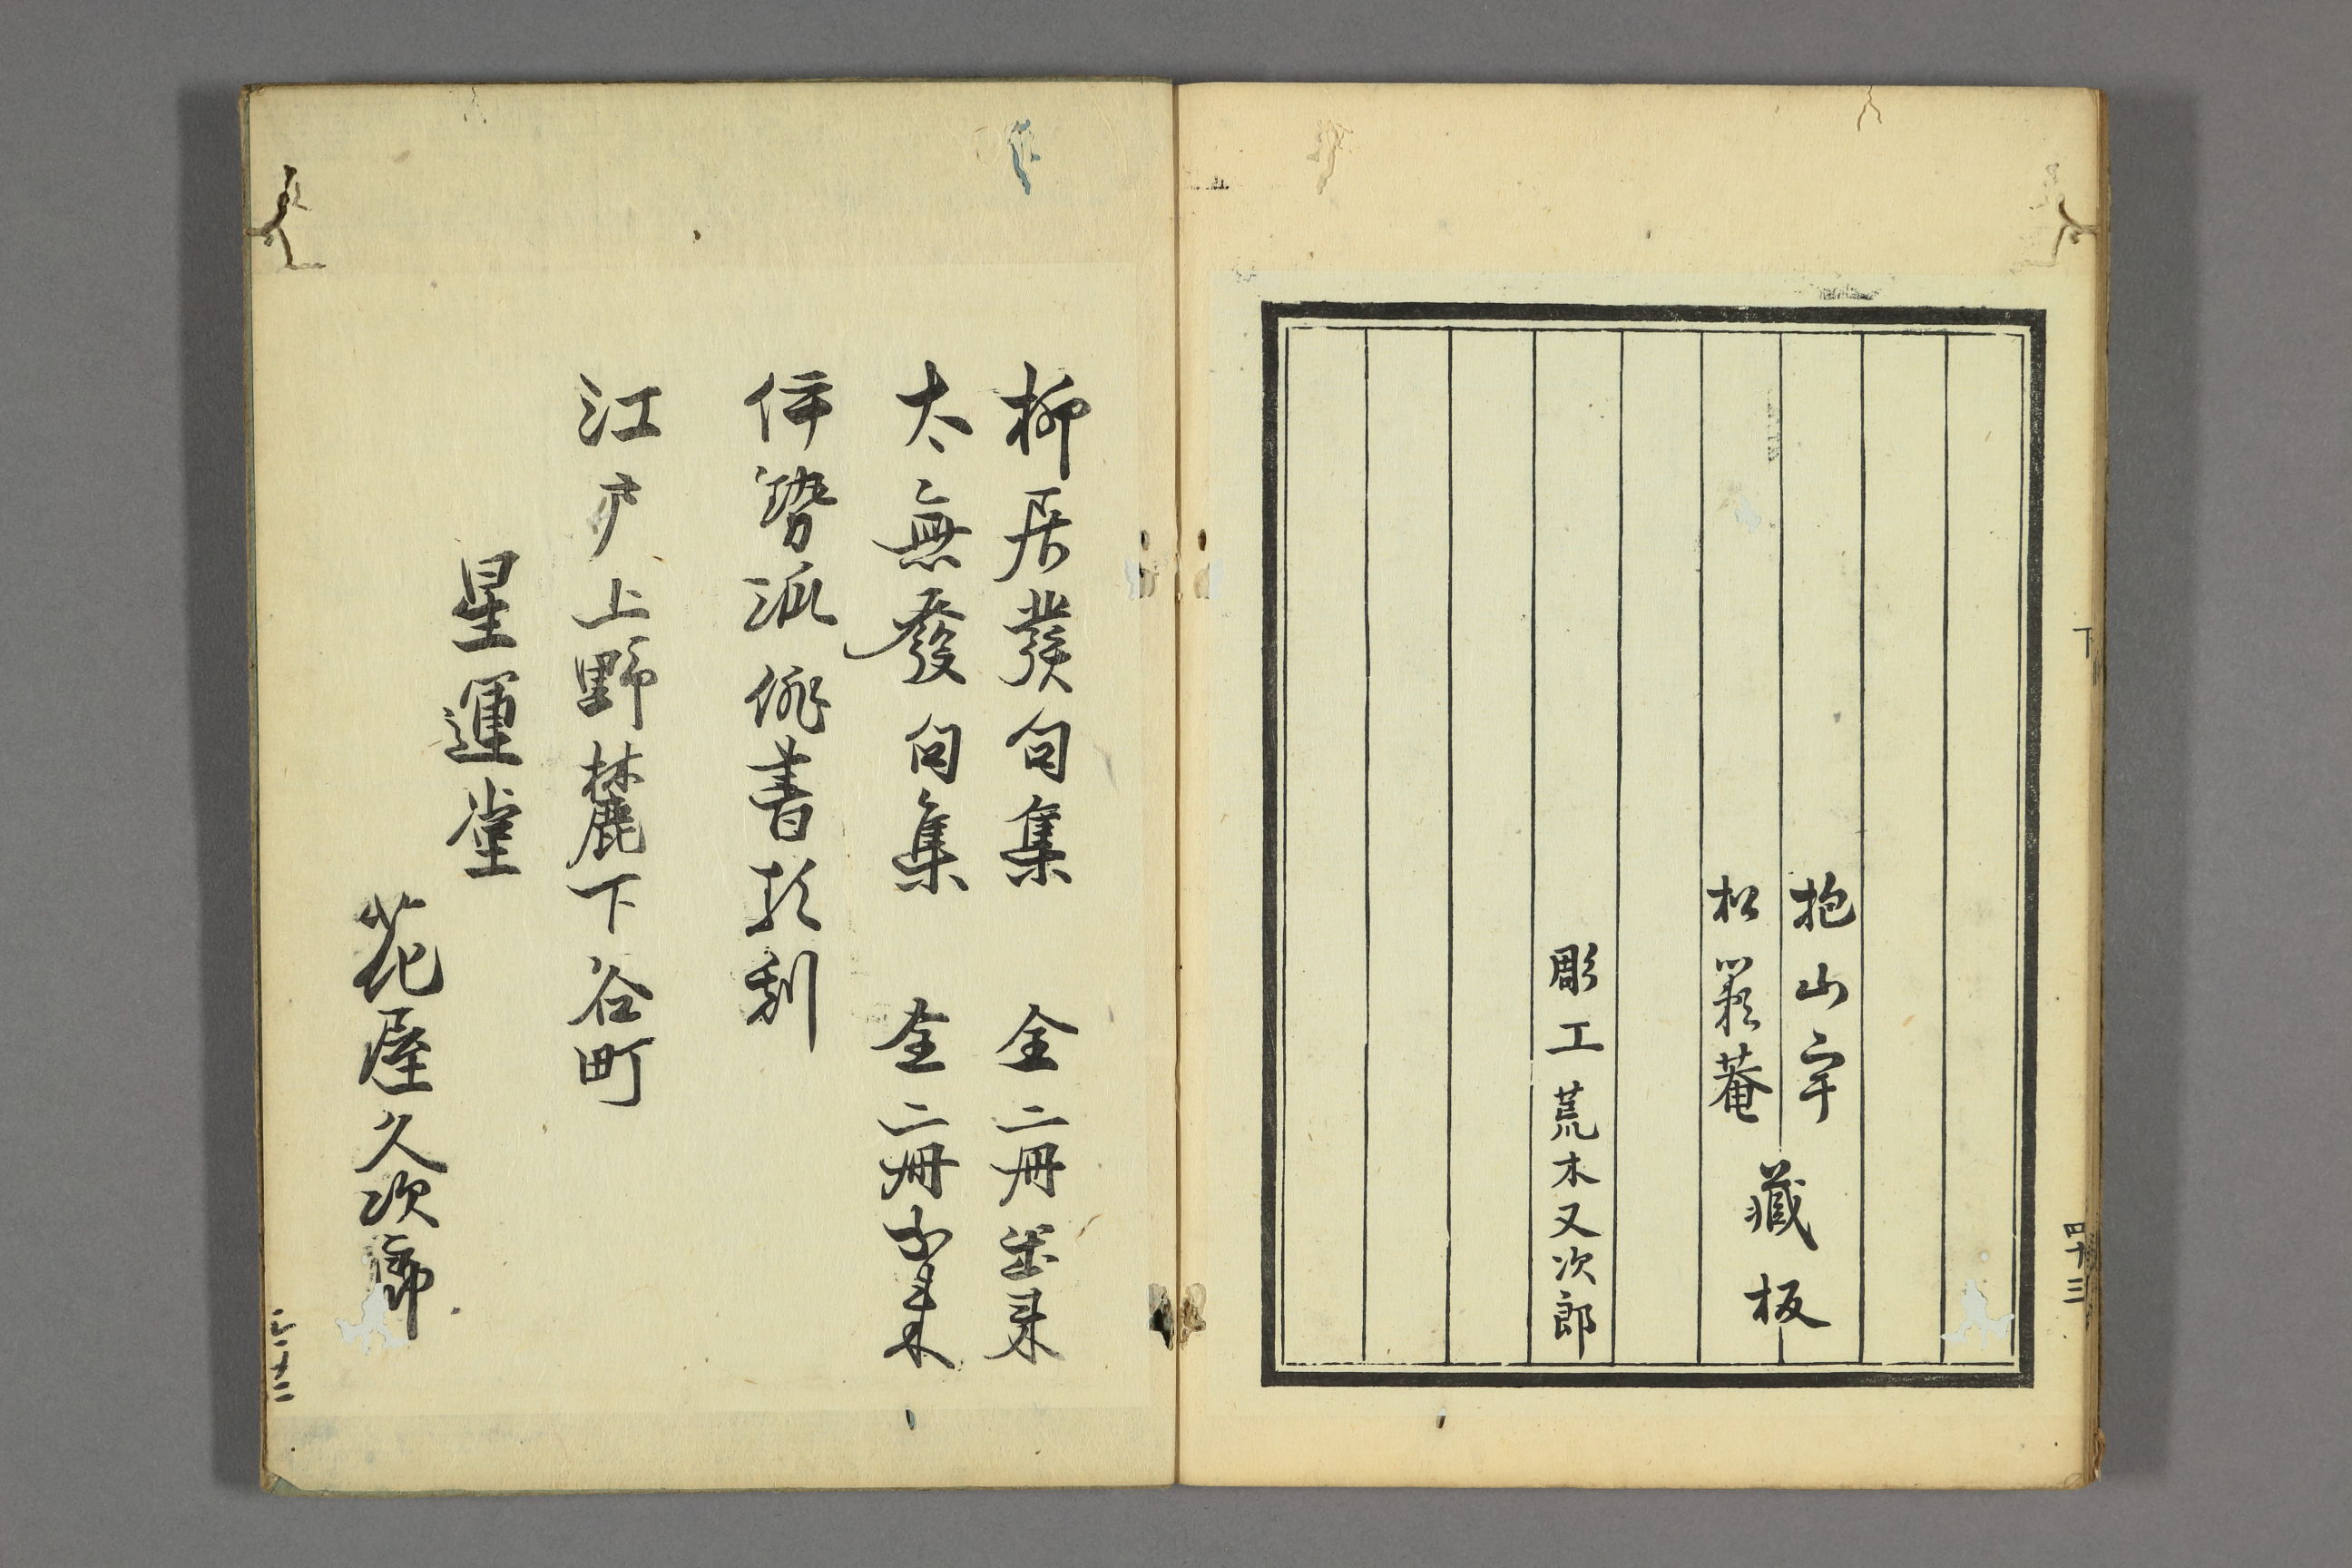 抱山宇
松籟菴
藏板
彫工 荒木又次郎
下
四十三
柳居發句集 全二冊 出来
太無發句集 全二冊 出来
伊勢派俳書彫刻
江戸上野麓下谷町
星運堂
花屋久次郎